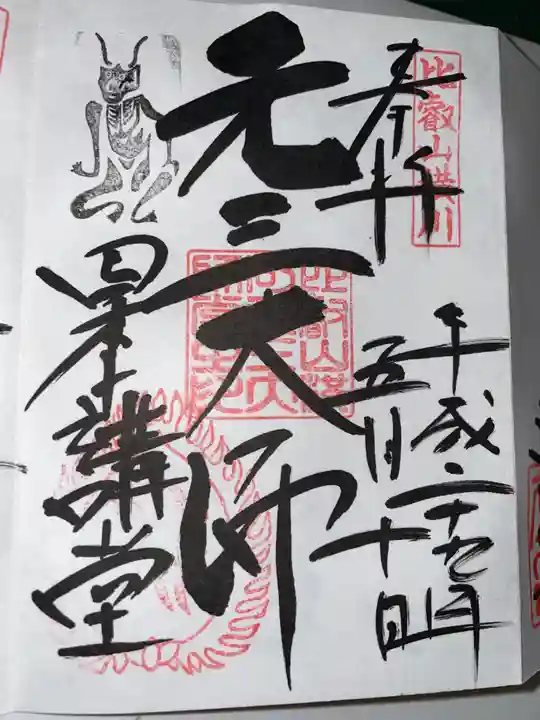 比叡山横川
奉拝
平成二十年
五月十日
元三大師
四季講堂